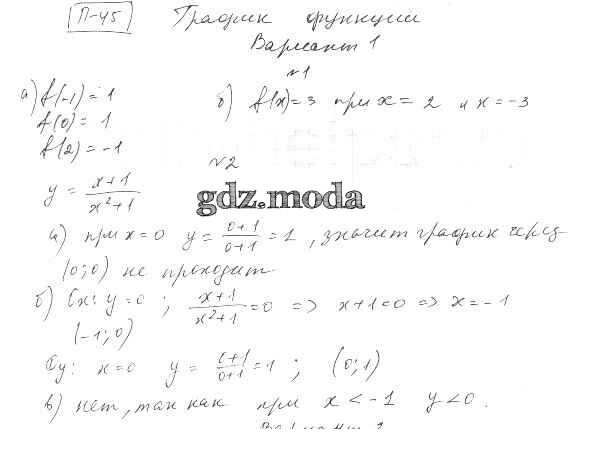 П-45 График функции
Вариант 1
№1
а) f(-1) = 1
f(0) = 1
f(2) = -1
б) f(x) = 3 при x = 2 и x = -3
№2
y = (x+1)/(x²+1)
gdz.moda
а) при x=0 y = (0+1)/(0+1) = 1, значит график через
(0;0) не проходит.
б) Ox: y=0 ; (x+1)/(x²+1) = 0 => x+1=0 => x=-1
(-1;0)
Oy: x=0 y = /(0+1) = 1 ; (0;1)
в) нет, так как при x < -1 y < 0.